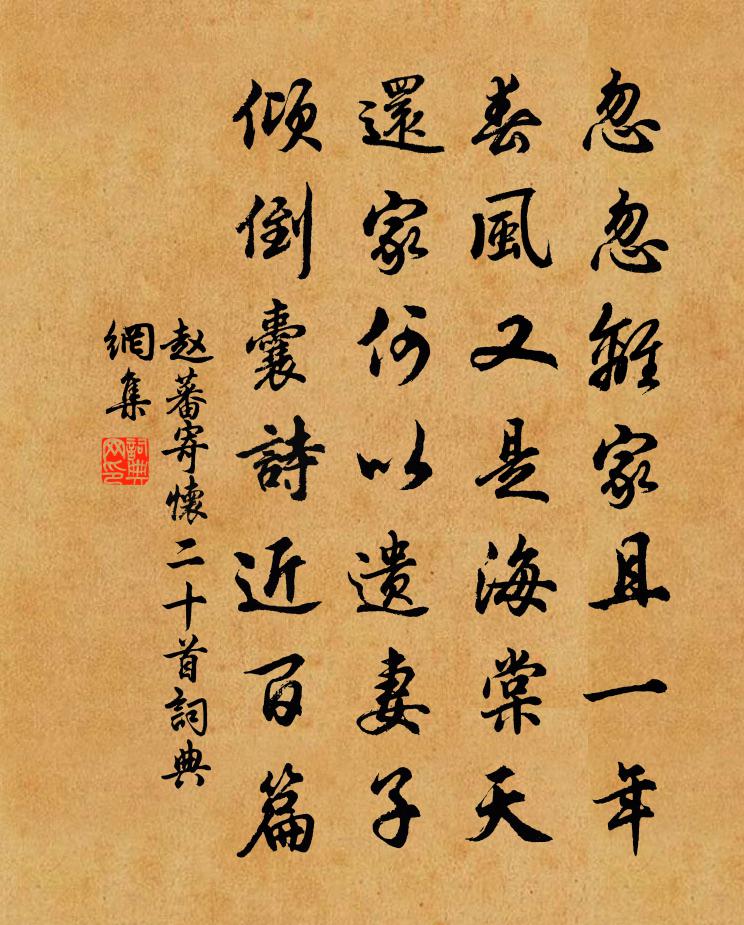 忽忽離家且一年
春風又是海棠天
還家何以遺妻子
傾倒囊詩近百篇
赵蕃寄懷二十首詞典
網集
詞典
网印